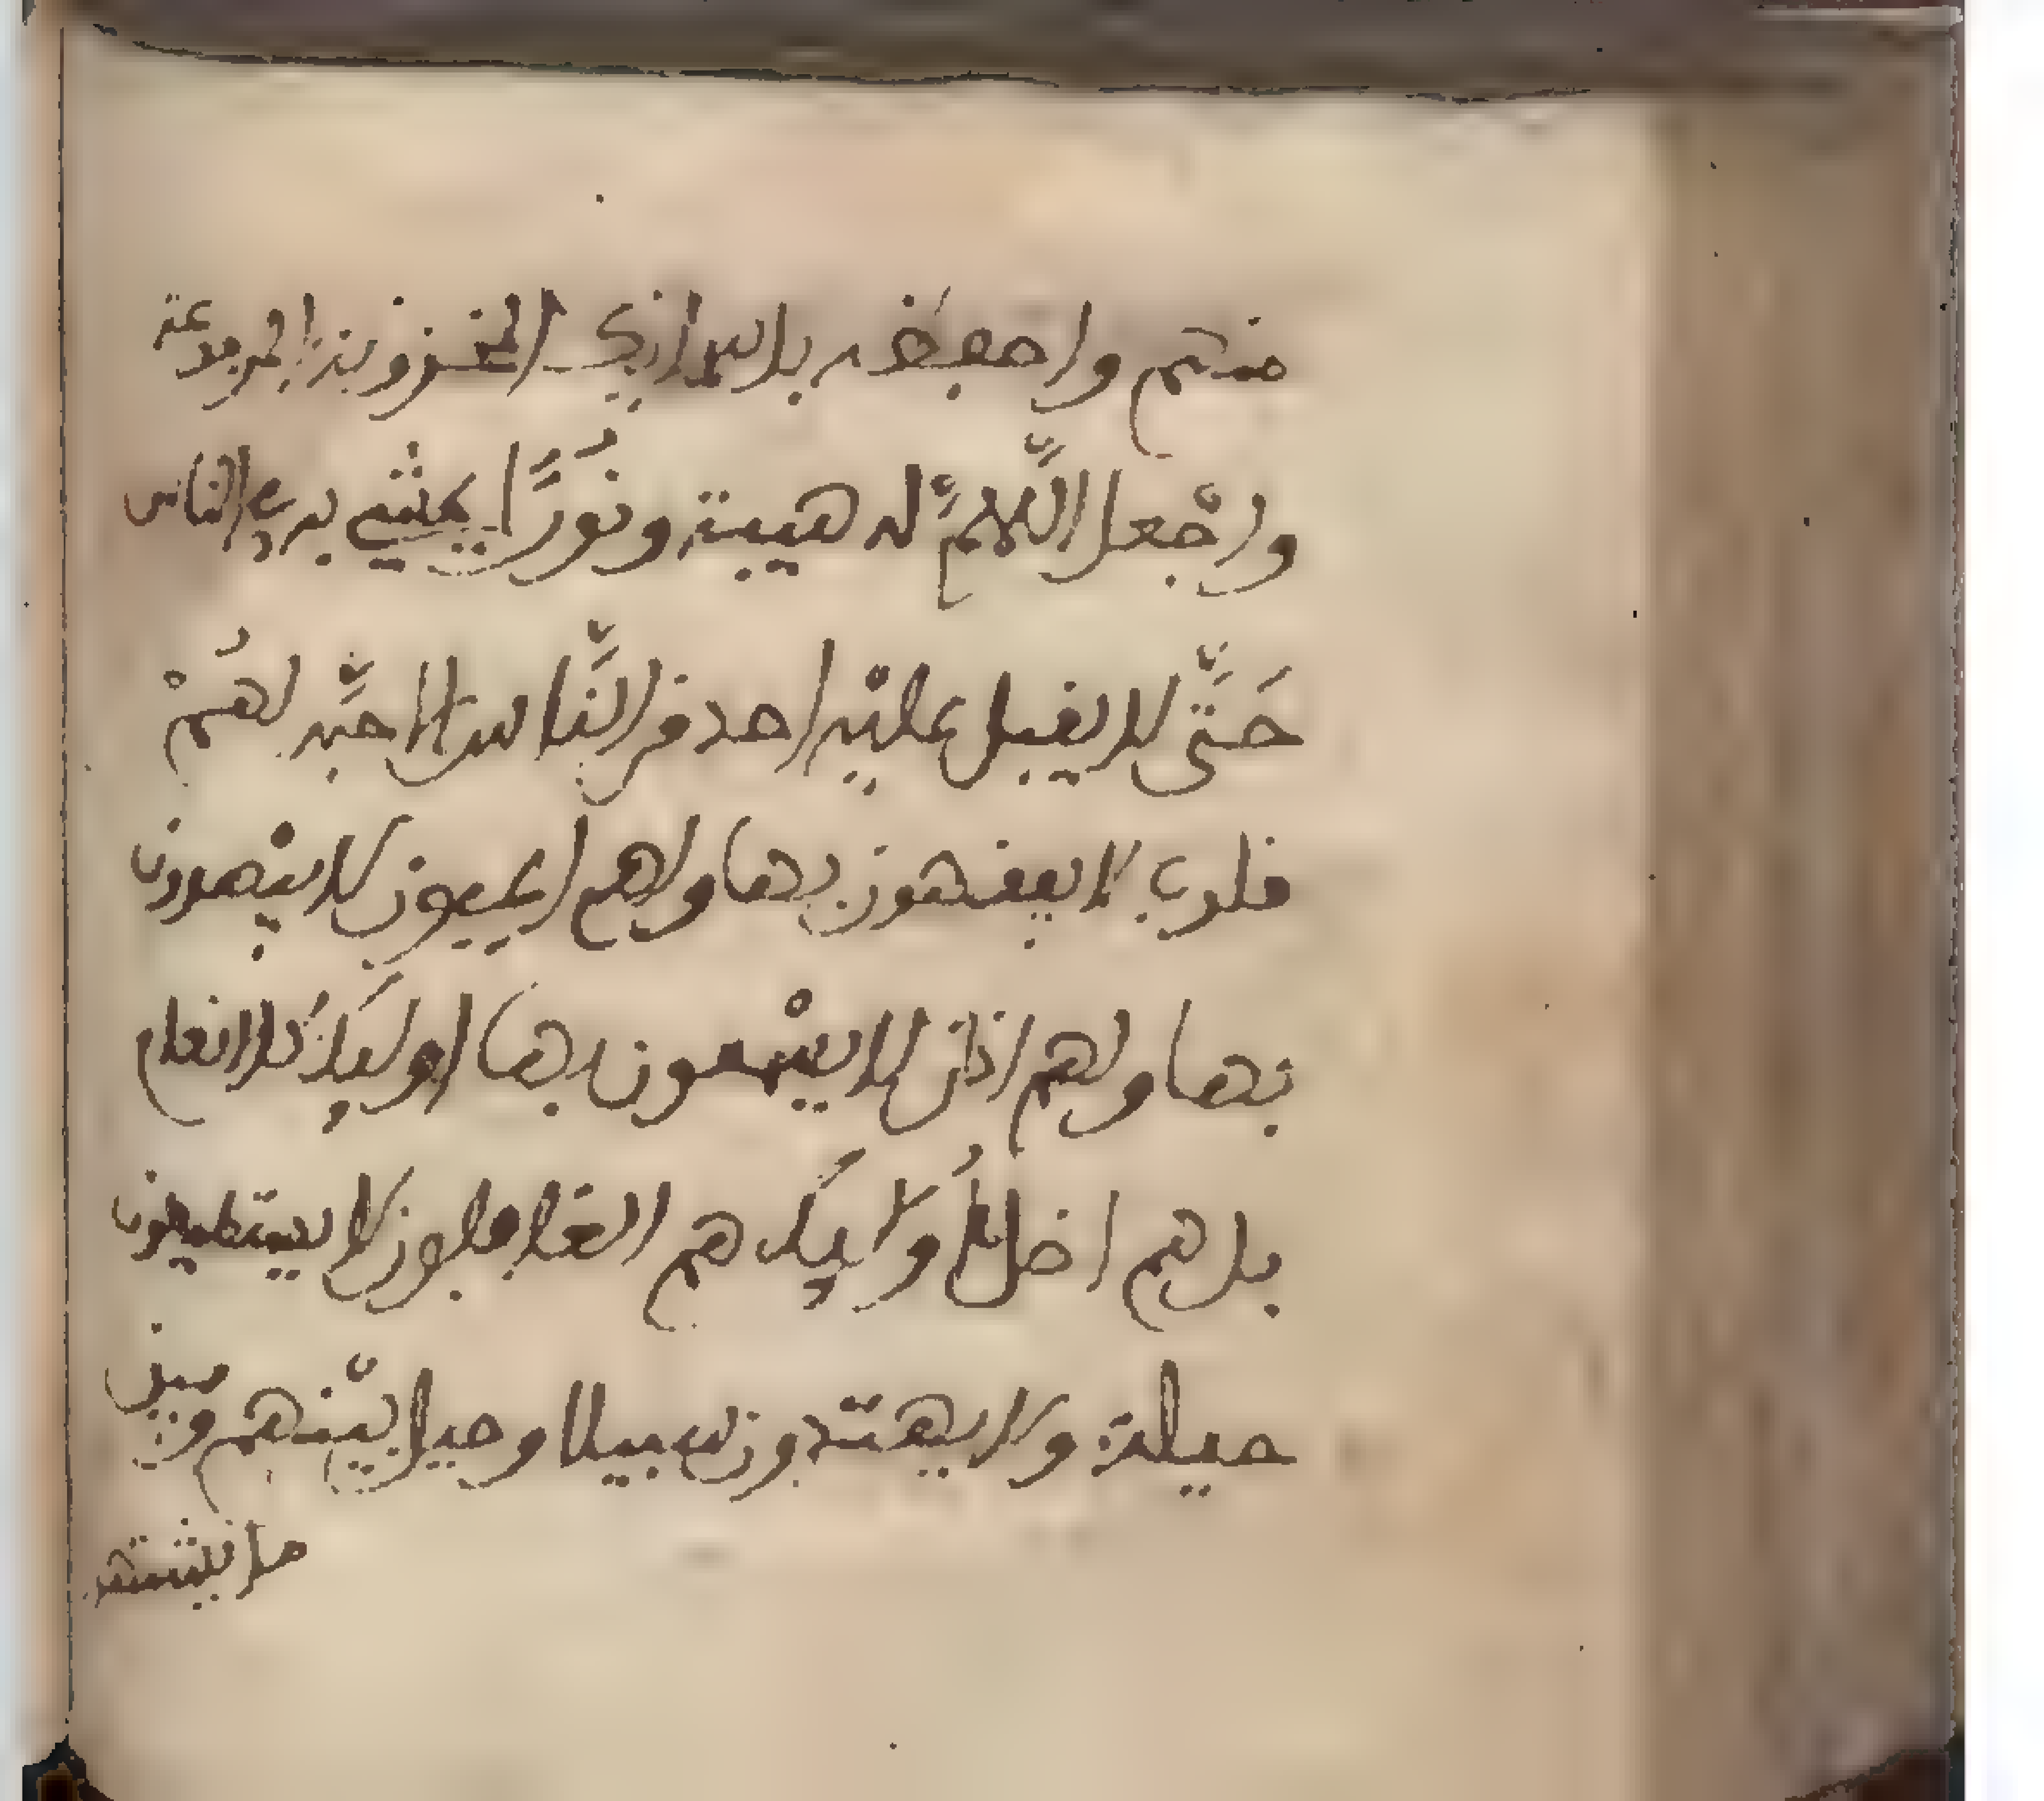 منهم واحفظه باسرارك المخزونة المودعة
واجْعل اللَّهمَّ له هيبة ونُورًا يمشي به في الناس
حَتَّى لا يقبل عليْه احد من النَّاس الا احبَّه لهُمْ
قلوب لا يفقهون بها ولهم اعيون لا يبْصرون
بها ولهم اذان لا يسْمعون بها اولَيِكَ كالانعام
بل هم اضل أُولايِكَ هم الغافلون لا يستطيعون
حيلة ولا يهتدون سبيلا وحيل بيْنهم وبين
ما يشته